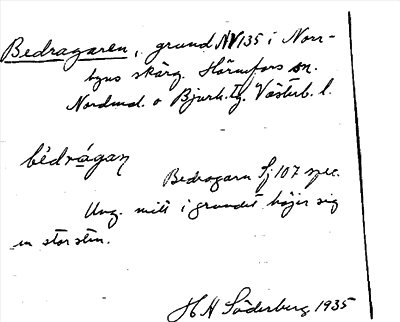 Bedragaren, grund NV 135 i Norr-
byns skärg. Hörnefors sn.
Nordmal. o Bjurh. tg. Västerb. l.
bèdrágan
Bedragarn Sj 107 spec.
Ung. mitt i grundet höjer sig
en stor sten.
H N Söderberg 1935